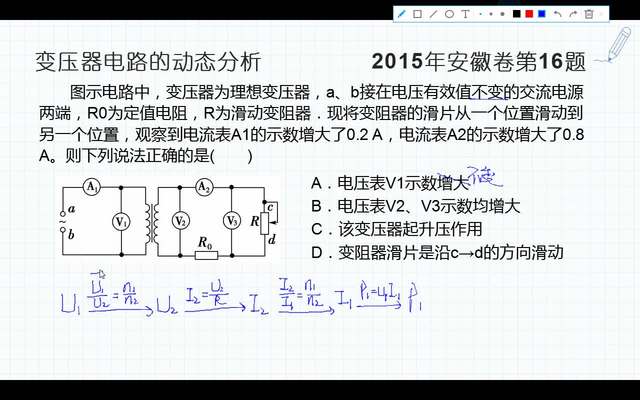 变压器电路的动态分析 2015年安徽卷第16题
图示电路中，变压器为理想变压器，a、b接在电压有效值不变的交流电源
两端，R0为定值电阻，R为滑动变阻器．现将变阻器的滑片从一个位置滑动到
另一个位置，观察到电流表A1的示数增大了0.2 A，电流表A2的示数增大了0.8
A。则下列说法正确的是(　　)
A．电压表V1示数增大 不变
B．电压表V2、V3示数均增大
C．该变压器起升压作用
D．变阻器滑片是沿c→d的方向滑动
A1 A2
a ~ b V1 V2 V3 R c d
R0
U1 U1/U2=n1/n2 U2 I2=U2/R I2 I2/I1=n1/n2 I1 P1=U1I1 P1